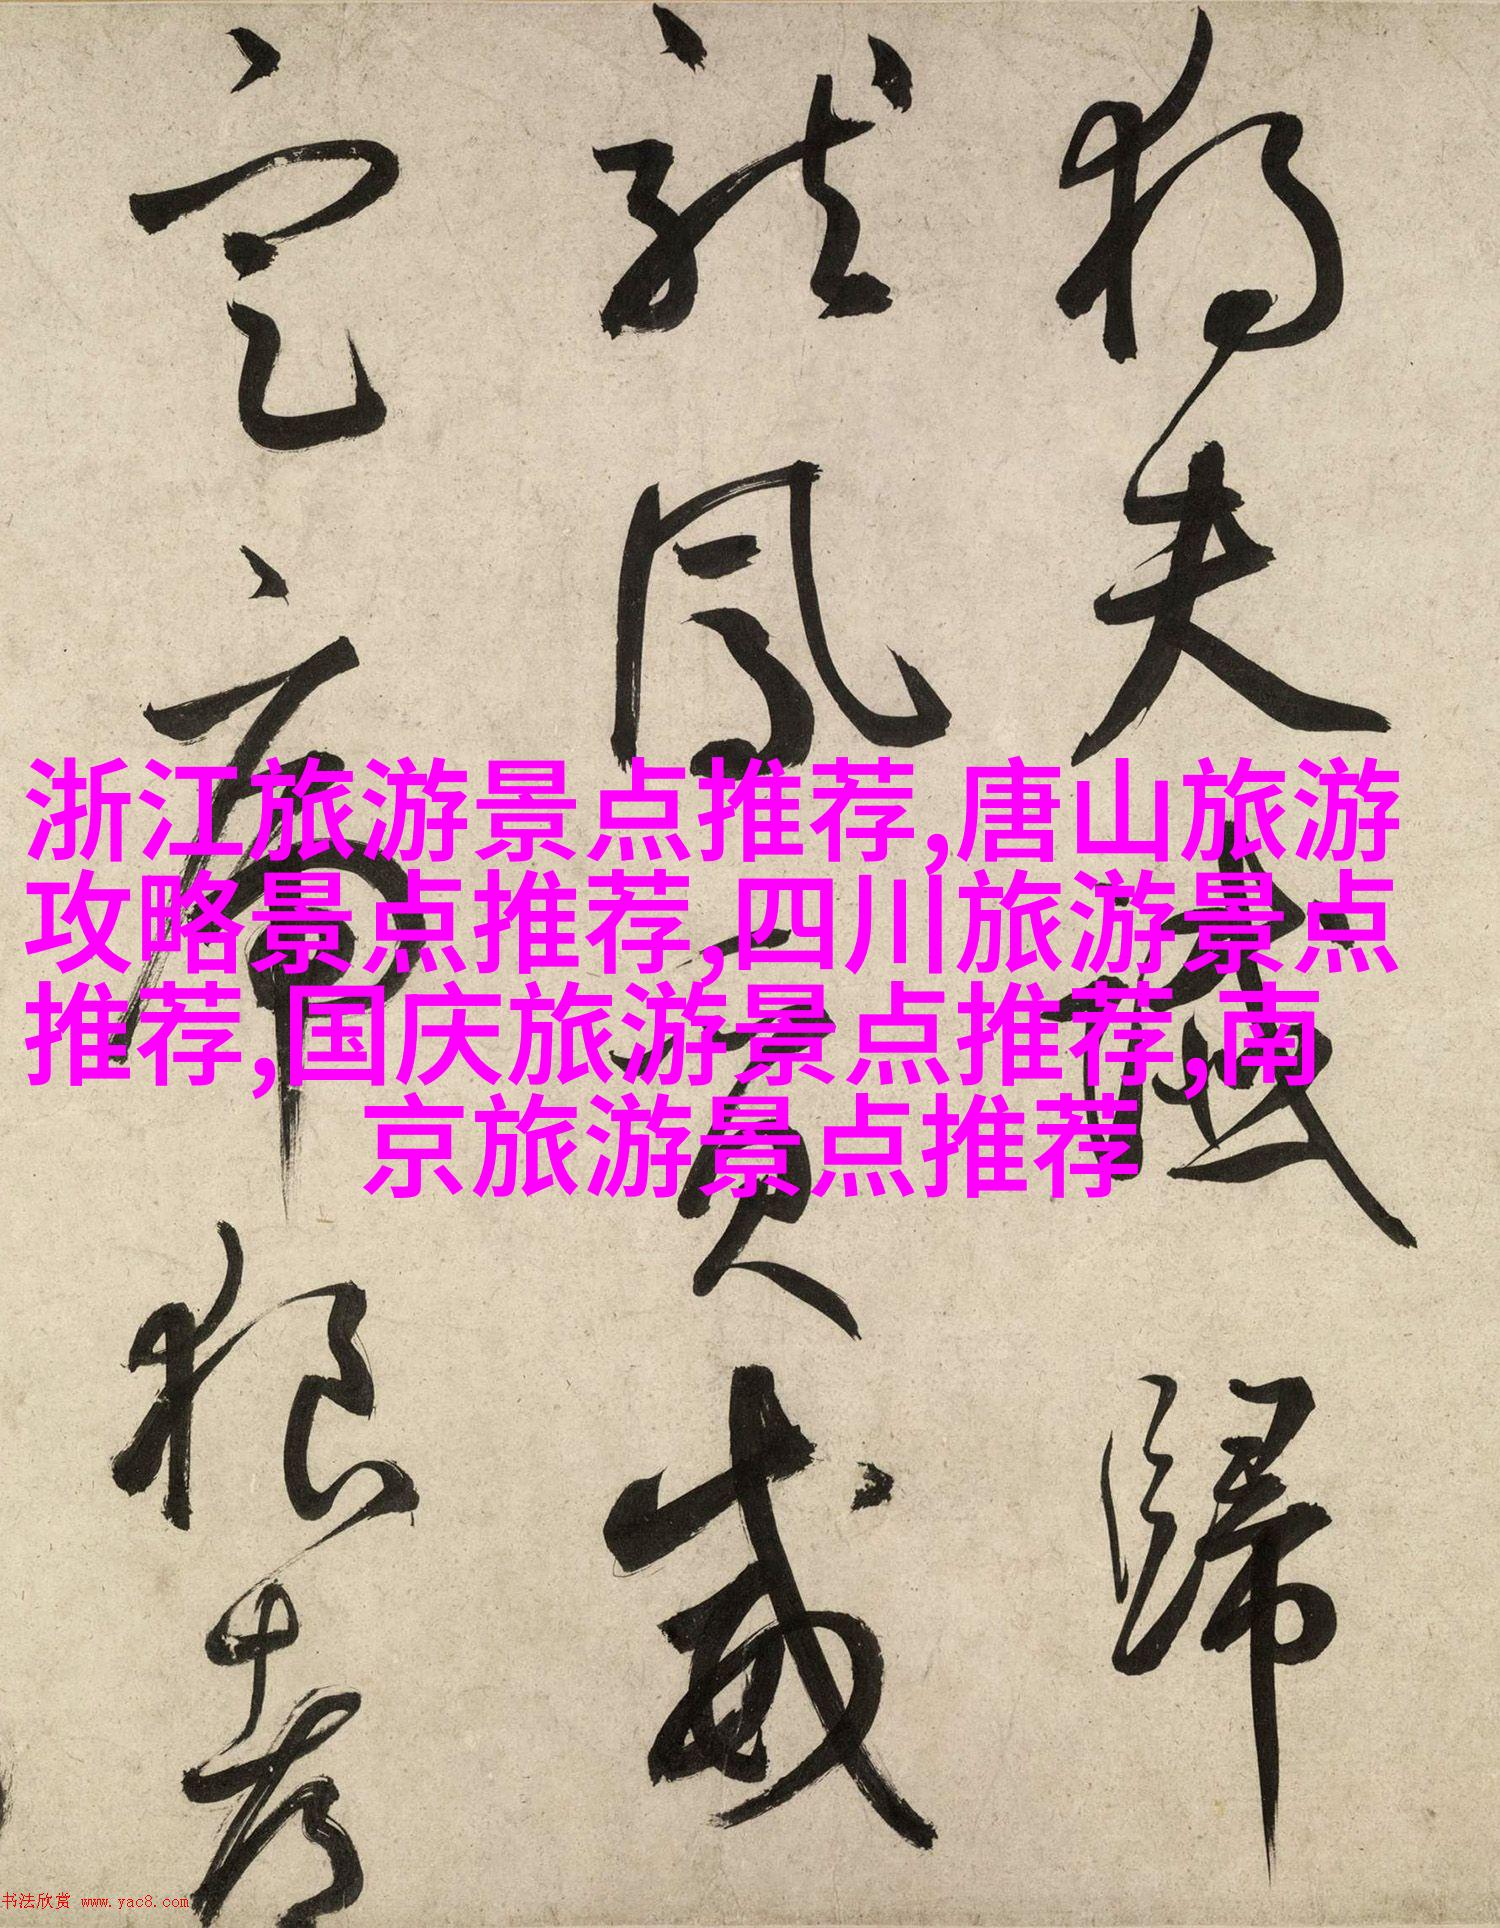 獨夫讖歸
龍鳳質威
定虎狼都
浙江旅游景点推荐,唐山旅游
攻略景点推荐,四川旅游景点
推荐,国庆旅游景点推荐,南
京旅游景点推荐
书法欣赏 www.yac8.com